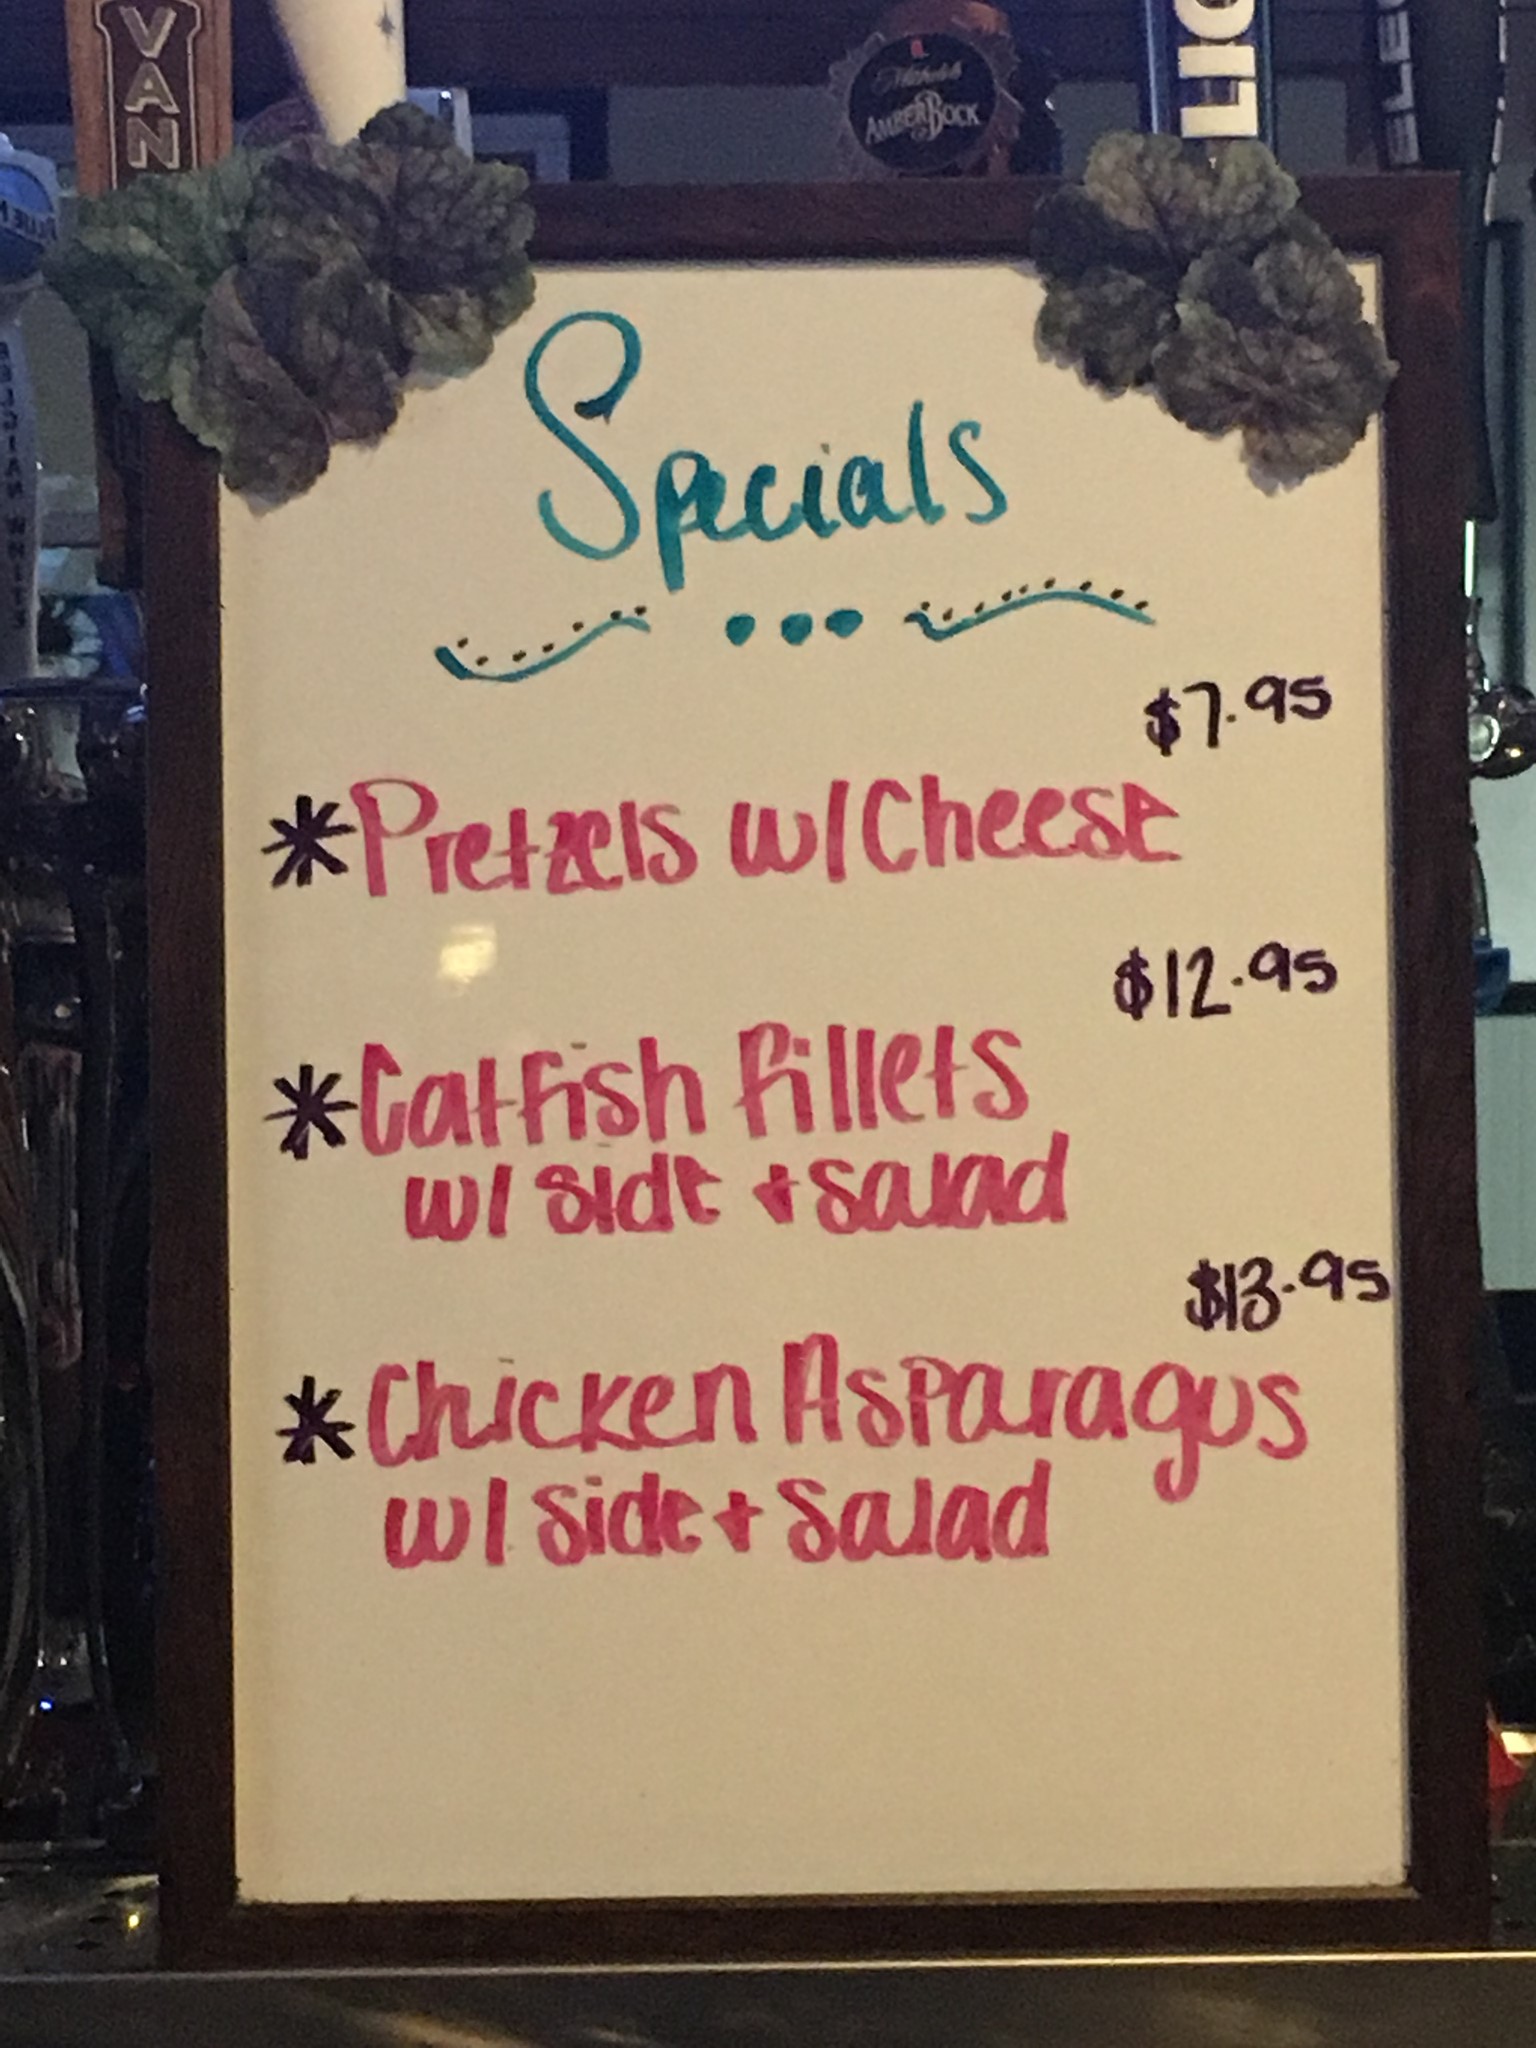 VAN
Michelob
AMBERBOCK
BELGIAN WHITE
Specials
$7.95
*Pretzels w/Cheese
$12.95
*Catfish fillets
w/ side + salad
$13.95
*Chicken Asparagus
w/ side + Salad